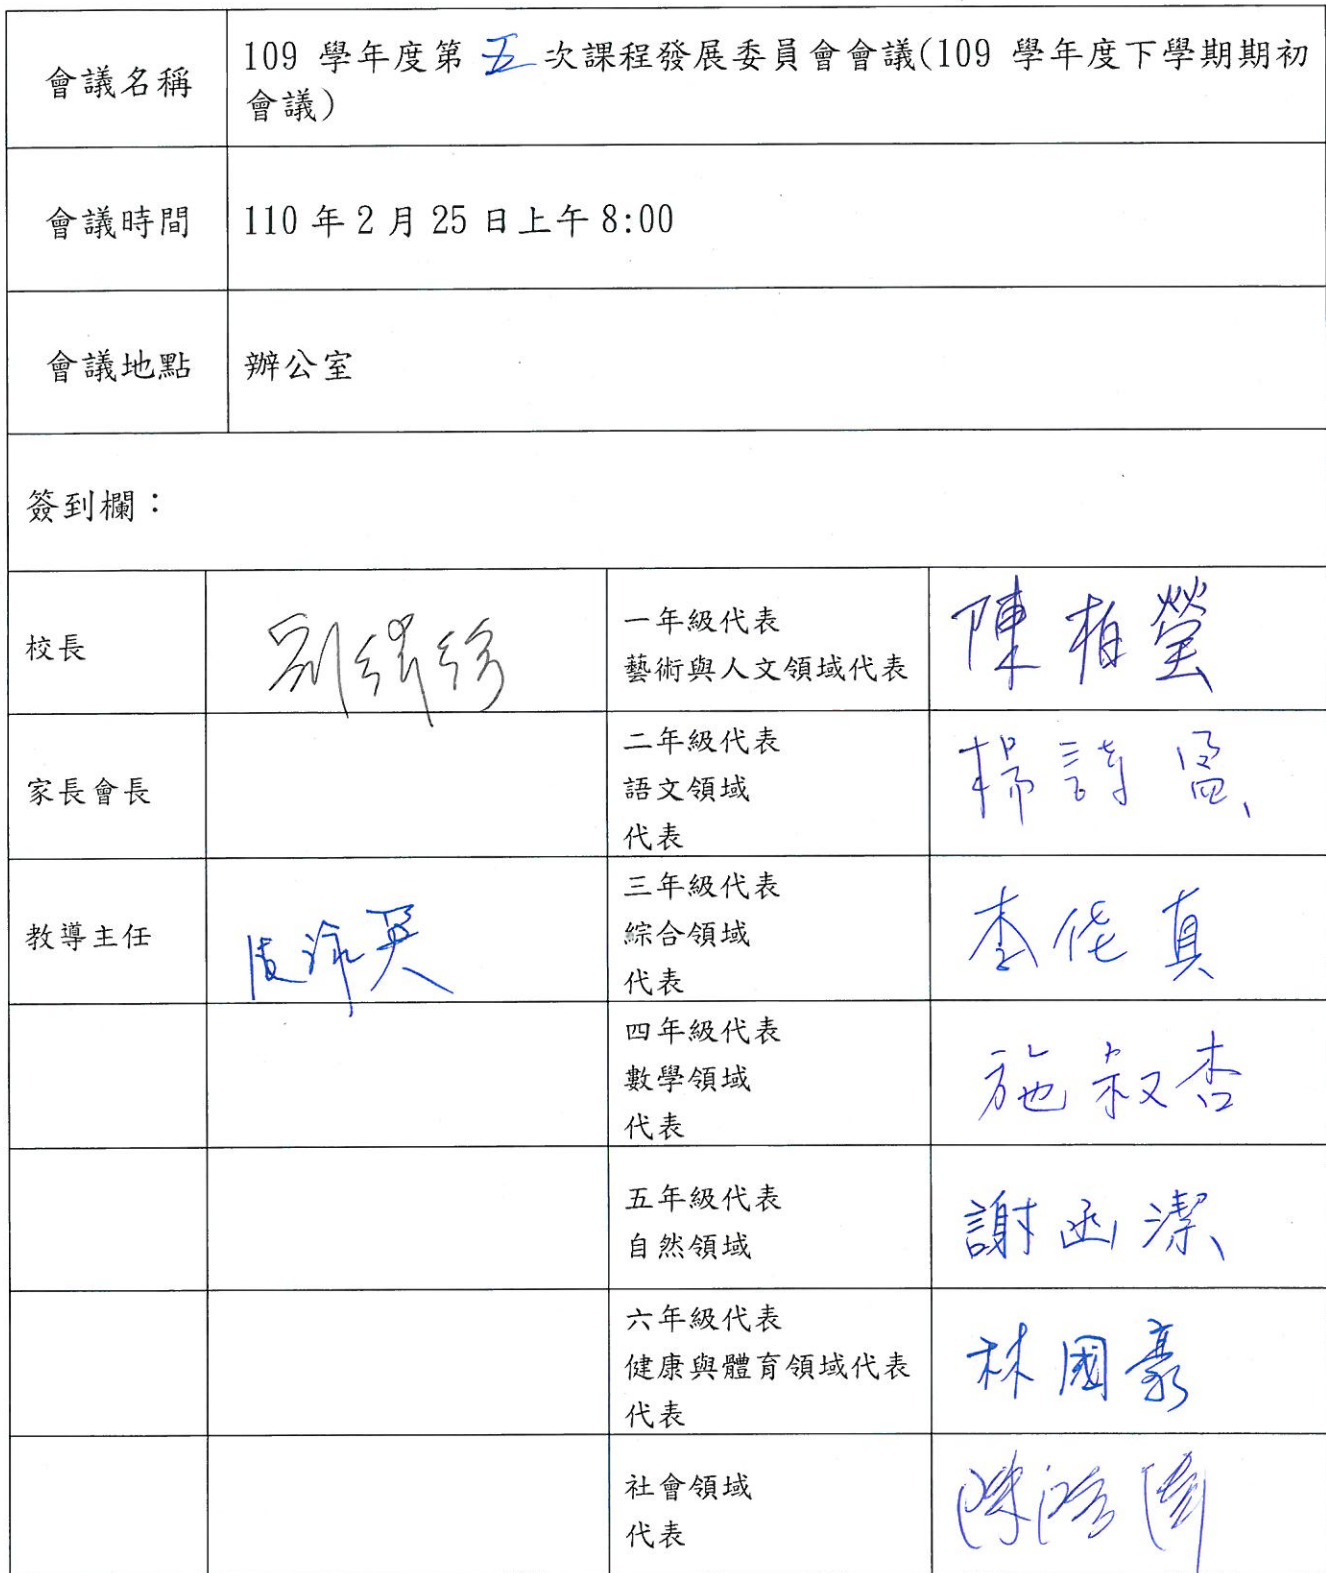 會議名稱
109 學年度第 五 次課程發展委員會會議(109 學年度下學期期初
會議)
會議時間
110 年 2 月 25 日上午 8:00
會議地點
辦公室
簽到欄：
校長
一年級代表
藝術與人文領域代表
陳柏瑩
家長會長
二年級代表
語文領域
代表
楊詩盈
教導主任
三年級代表
綜合領域
代表
李佬真
四年級代表
數學領域
代表
施叔杏
五年級代表
自然領域
謝函潔
六年級代表
健康與體育領域代表
代表
林國豪
社會領域
代表